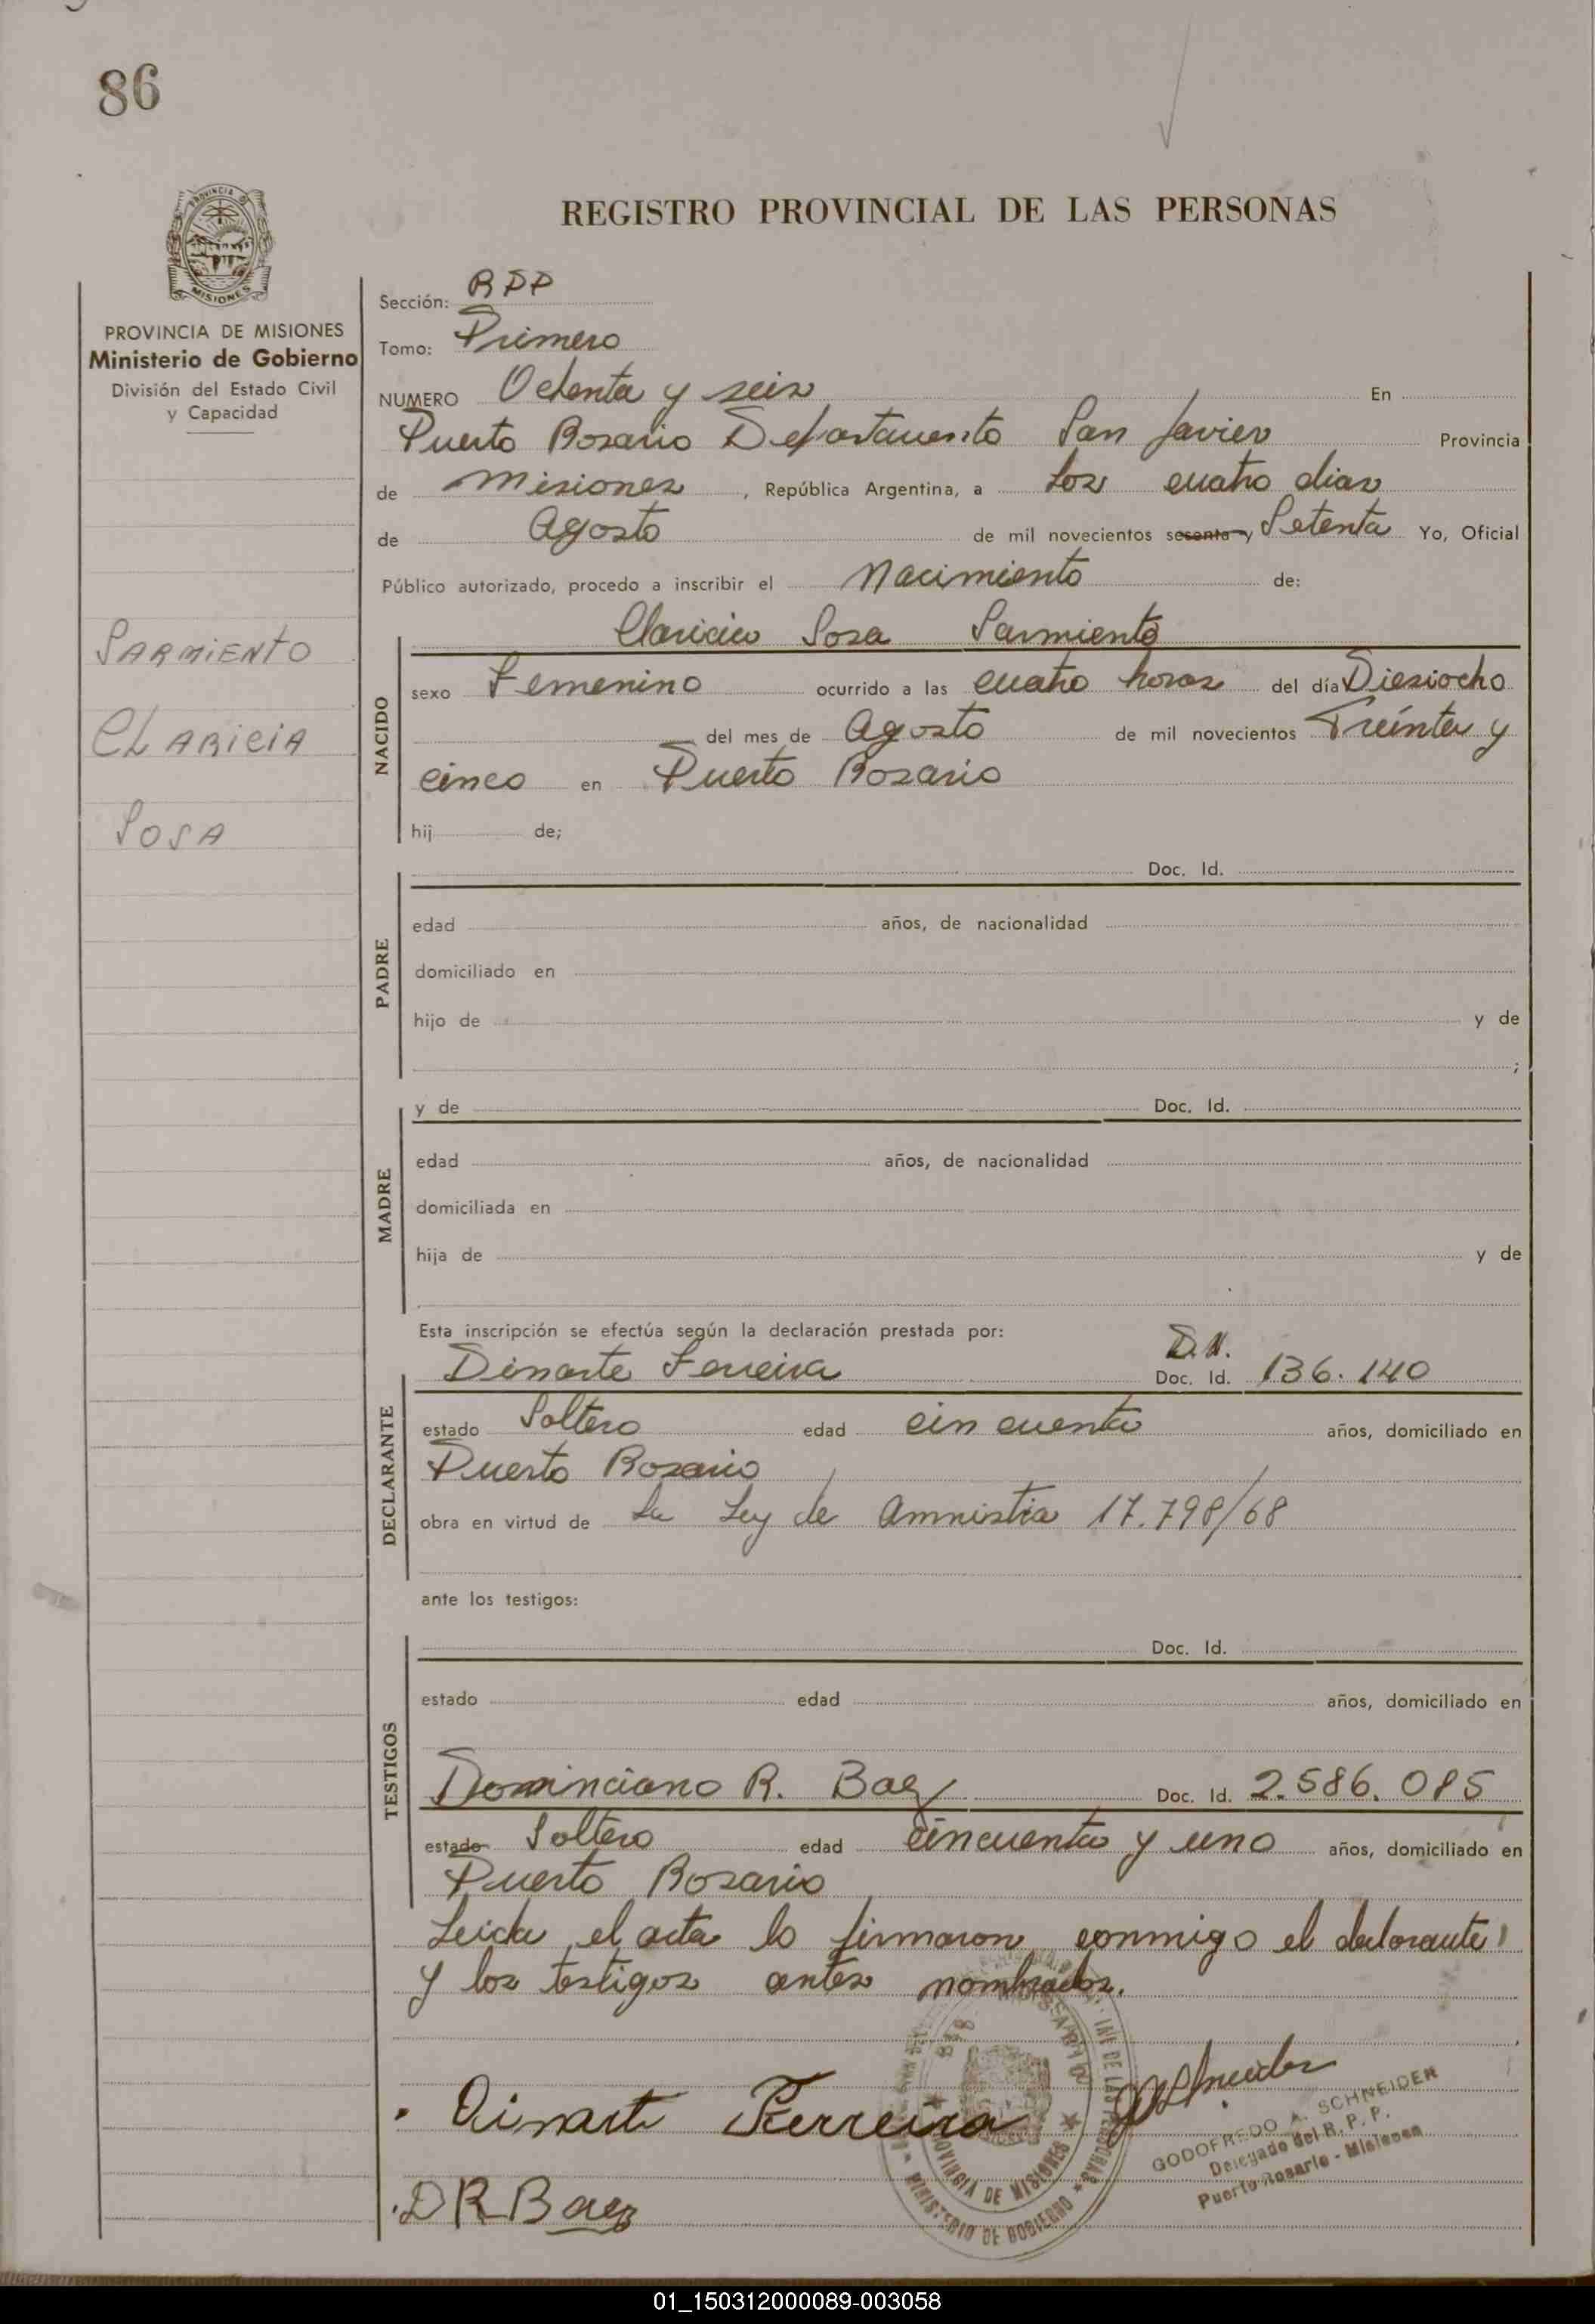 86
REGISTRO PROVINCIAL DE LAS PERSONAS
PROVINCIA
MISIONES
PROVINCIA DE MISIONES
Ministerio de Gobierno
División del Estado Civil
y Capacidad
SARMIENTO
CLARICIA
SOSA
Sección: RPP
Tomo: Primero
NUMERO Ochenta y seis En
Puerto Rosario Departamento San Javier Provincia
de Misiones, República Argentina, a los cuatro dias
de Agosto de mil novecientos sesenta y Setenta Yo, Oficial
Público autorizado, procedo a inscribir el Nacimiento de:
Claricia Sosa Sarmiento
NACIDO
sexo Femenino ocurrido a las cuatro horas del día Diesiocho
del mes de Agosto de mil novecientos Treinta y
cinco en Puerto Rosario
hij de;
PADRE
Doc. Id.
edad años, de nacionalidad
domiciliado en
hijo de y de
;
MADRE
y de Doc. Id.
edad años, de nacionalidad
domiciliada en
hija de y de
Esta inscripción se efectúa según la declaración prestada por:
DECLARANTE
Dinarte Ferreira Doc. Id. 136.140
estado Soltero edad cincuenta años, domiciliado en
Puerto Rosario
obra en virtud de La Ley de Amnistia 17.798/68
ante los testigos:
TESTIGOS
Doc. Id.
estado edad años, domiciliado en
Dominciano R. Baez Doc. Id. 2.586.085
estado Soltero edad cincuenta y uno años, domiciliado en
Puerto Rosario
Leida el acta lo firmaron conmigo el declarante
y los testigos antes nombrados.
Dinarte Ferreira
D R Baez
PROVINCIA DE MISIONES
MINISTERIO DE GOBIERNO
GODOFREDO A. SCHNEIDER
Delegado del R. P. P.
Puerto Rosario - Misiones
01_150312000089-003058